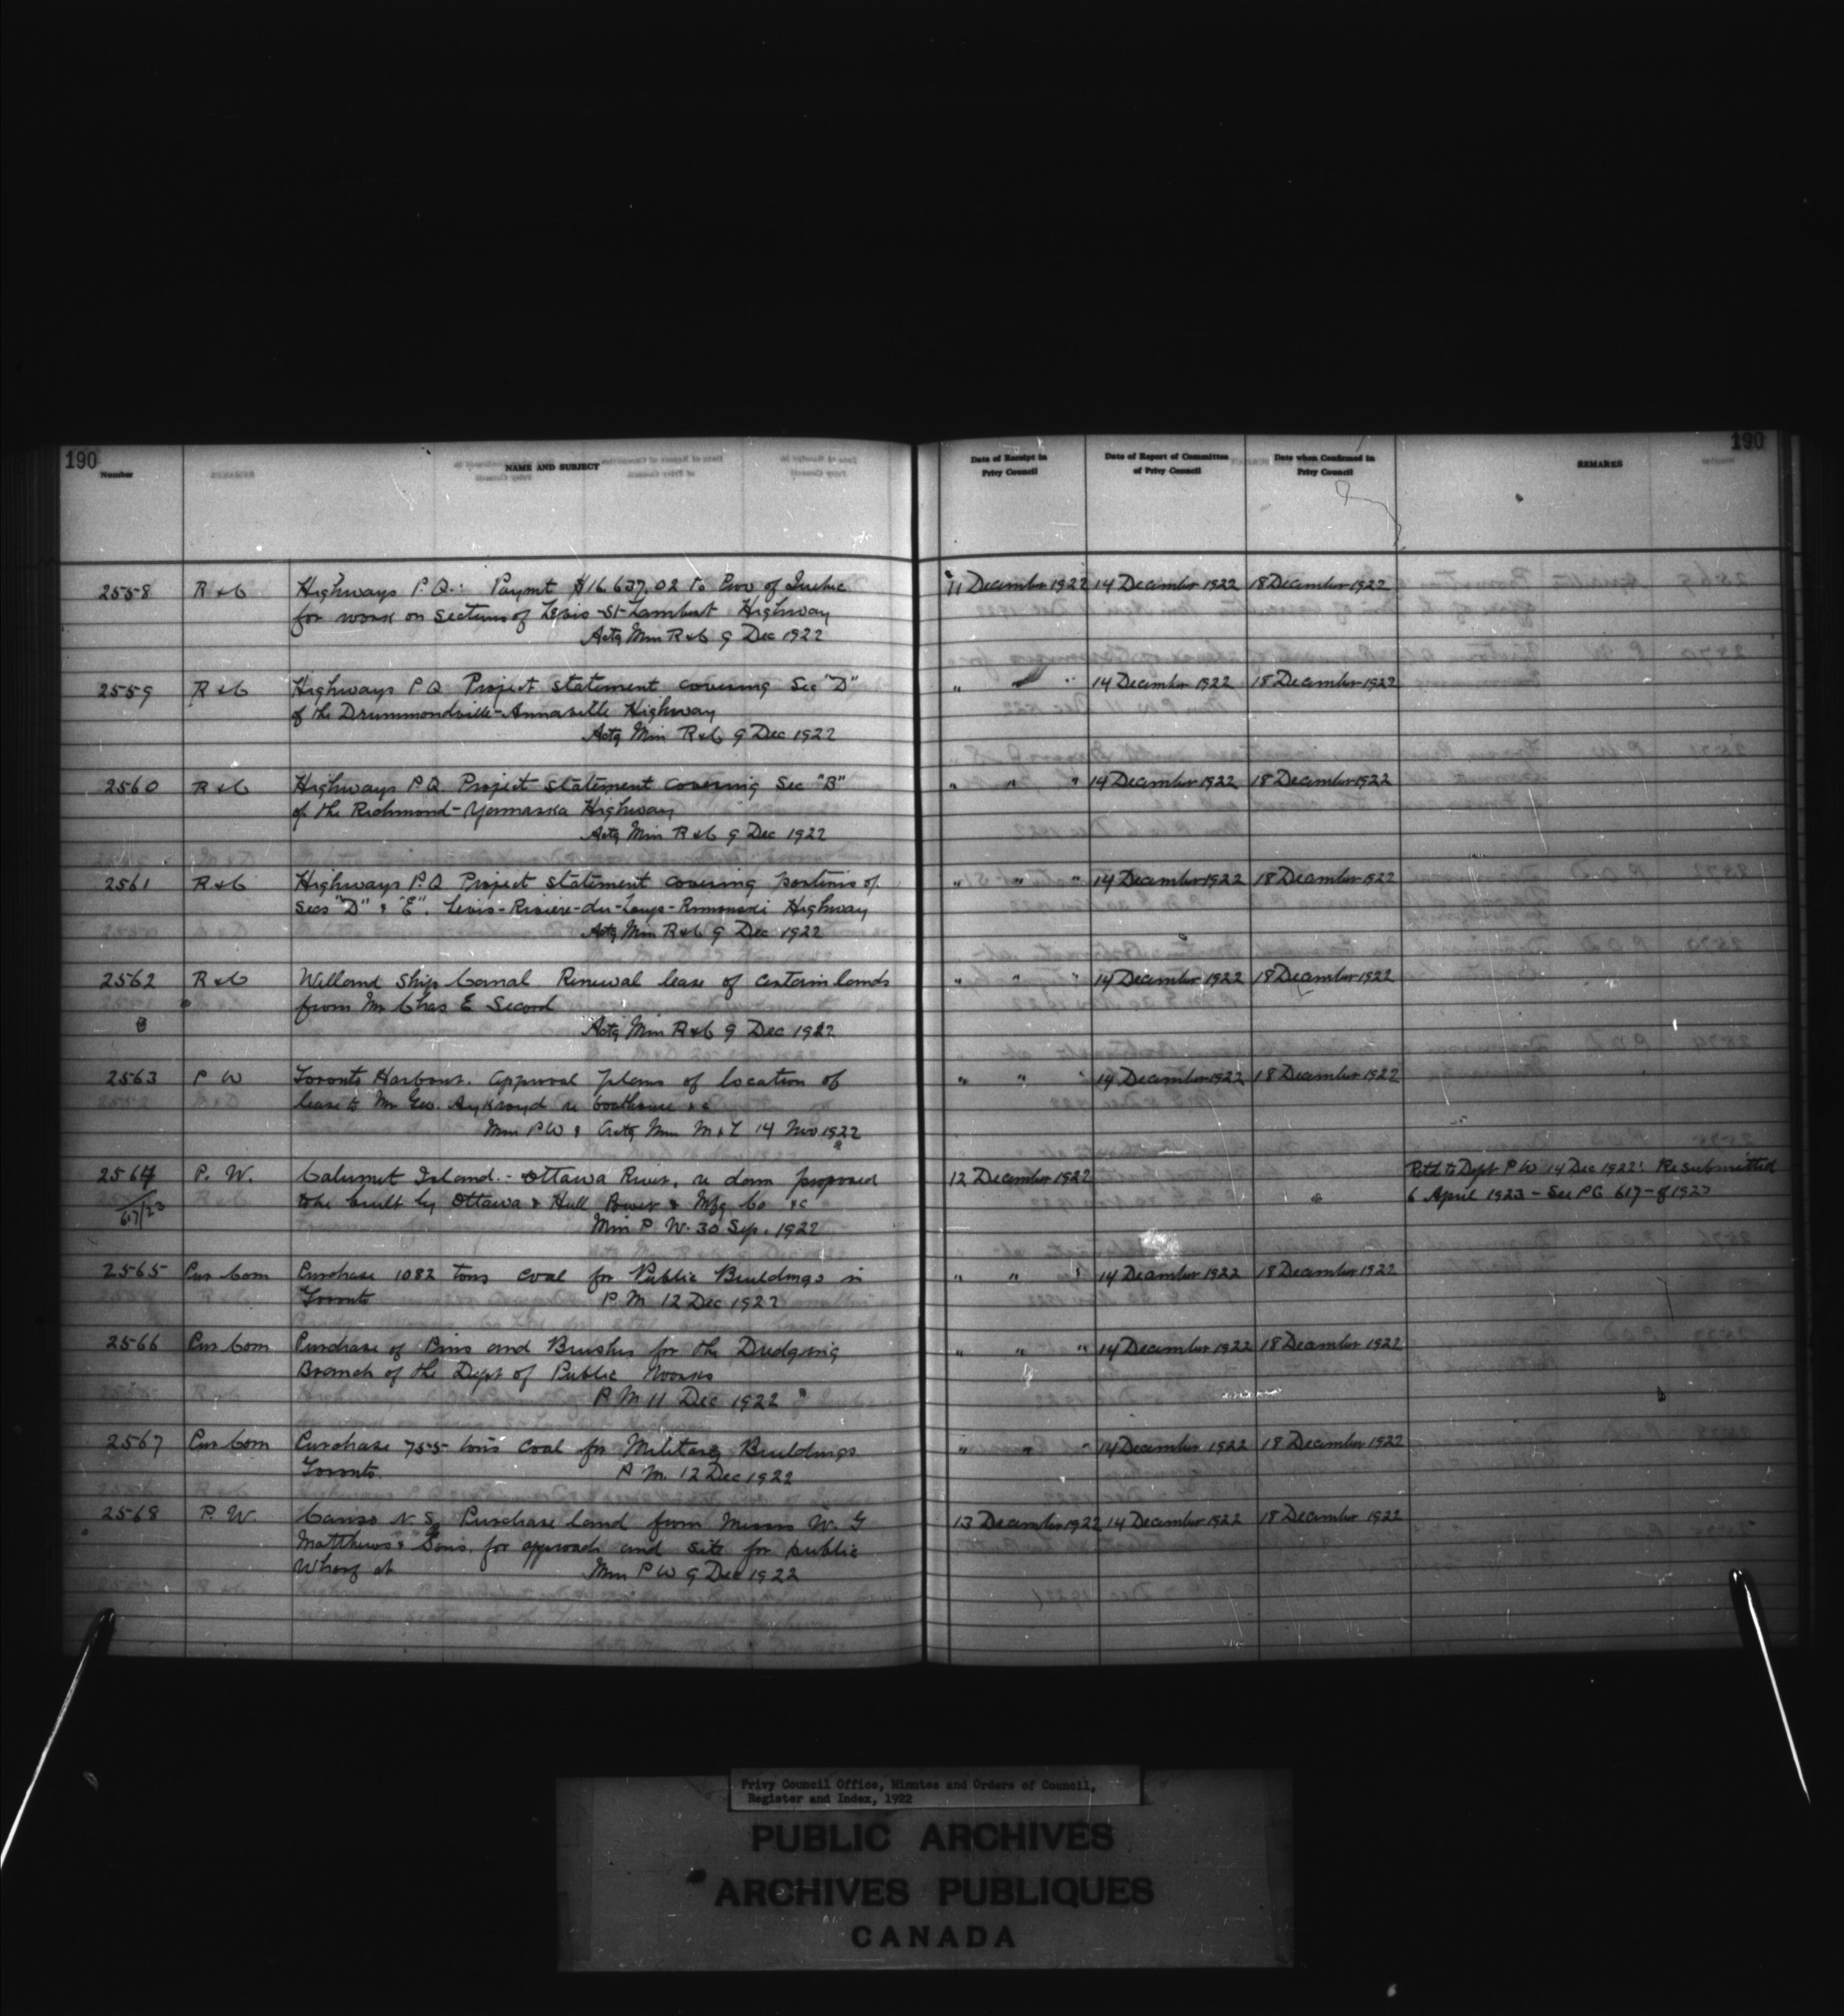 190
190
Number
NAME AND SUBJECT
Date of Receipt in Privy Council
Date of Report of Committee of Privy Council
Date when Confirmed in Privy Council
REMARKS
2558 R & C Highways P.Q.: Paymt $16,637.02 to Prov of Quebec 11 December 1922 14 December 1922 18 December 1922
for work on sections of Levis-St-Lambert Highway
Actg Min R & C 9 Dec 1922
2559 R & C Highways P Q Project statement covering Sec "D" " " 14 December 1922 18 December 1922
of the Drummondville-Annaville Highway
Actg Min R & C 9 Dec 1922
2560 R & C Highways P Q Project statement covering Sec "B" " " " 14 December 1922 18 December 1922
of the Richmond-Yamaska Highway
Actg Min R & C 9 Dec 1922
2561 R & C Highways P.Q Project statement covering portions of " " " 14 December 1922 18 December 1922
Secs "D" & "E". Levis-Riviere-du-Loup-Rimouski Highway
Actg Min R & C 9 Dec 1922
2562 R & C Welland Ship Canal Renewal lease of certain lands " " " 14 December 1922 18 December 1922
from Mr Chas E Secord
Actg Min R & C 9 Dec 1922
2563 P W Toronto Harbour. Approval plans of location of " " " 14 December 1922 18 December 1922
lease to Mr Geo. Aykroyd re boathouse &c
Min P W & Actg Min M & F 14 Nov 1922
2564 P. W. Calumet Island - Ottawa River, re dam proposed 12 December 1922 Retd to Dept P W 14 Dec 1922: Resubmitted
617/23 to be built by Ottawa & Hull Power & Mfg Co &c 6 April 1923 - See PC 617 - of 1923
Min P. W. 30 Sep. 1922
2565 Pur Com Purchase 1082 tons coal for Public Buildings in " " " 14 December 1922 18 December 1922
Toronto P. M 12 Dec 1922
2566 Pur Com Purchase of Pins and Brushes for the Dredging " " " 14 December 1922 18 December 1922
Branch of the Dept of Public Works
P. M 11 Dec 1922
2567 Pur Com Purchase 755 tons coal for Military Buildings " " " 14 December 1922 18 December 1922
Toronto. P. M. 12 Dec 1922
2568 P. W. Canso N. S. Purchase land from Messrs W. G 13 December 1922 14 December 1922 18 December 1922
Matthews & Sons. for approach and site for public
Wharf at Min P W 9 Dec 1922
Privy Council Office, Minutes and Orders of Council,
Register and Index, 1922
PUBLIC ARCHIVES
ARCHIVES PUBLIQUES
CANADA